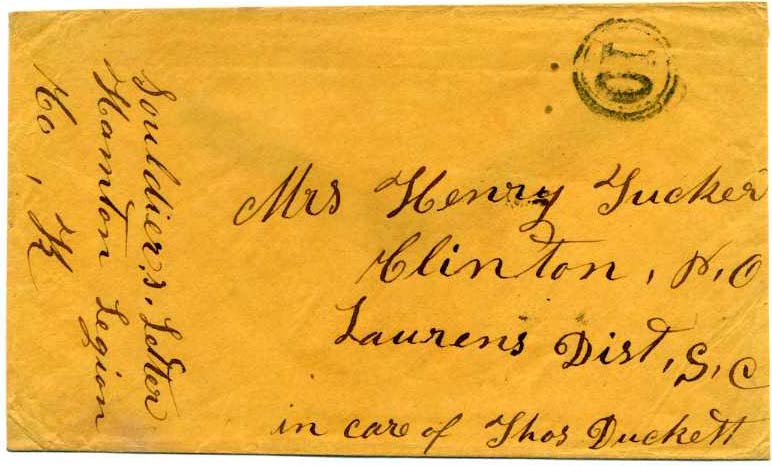 10
Mrs Henry Tucker
Clinton, P,O
Laurens Dist, S,C
in care of Thos Duckett
Souldiers, Letter
Hamton Legion
Co, K